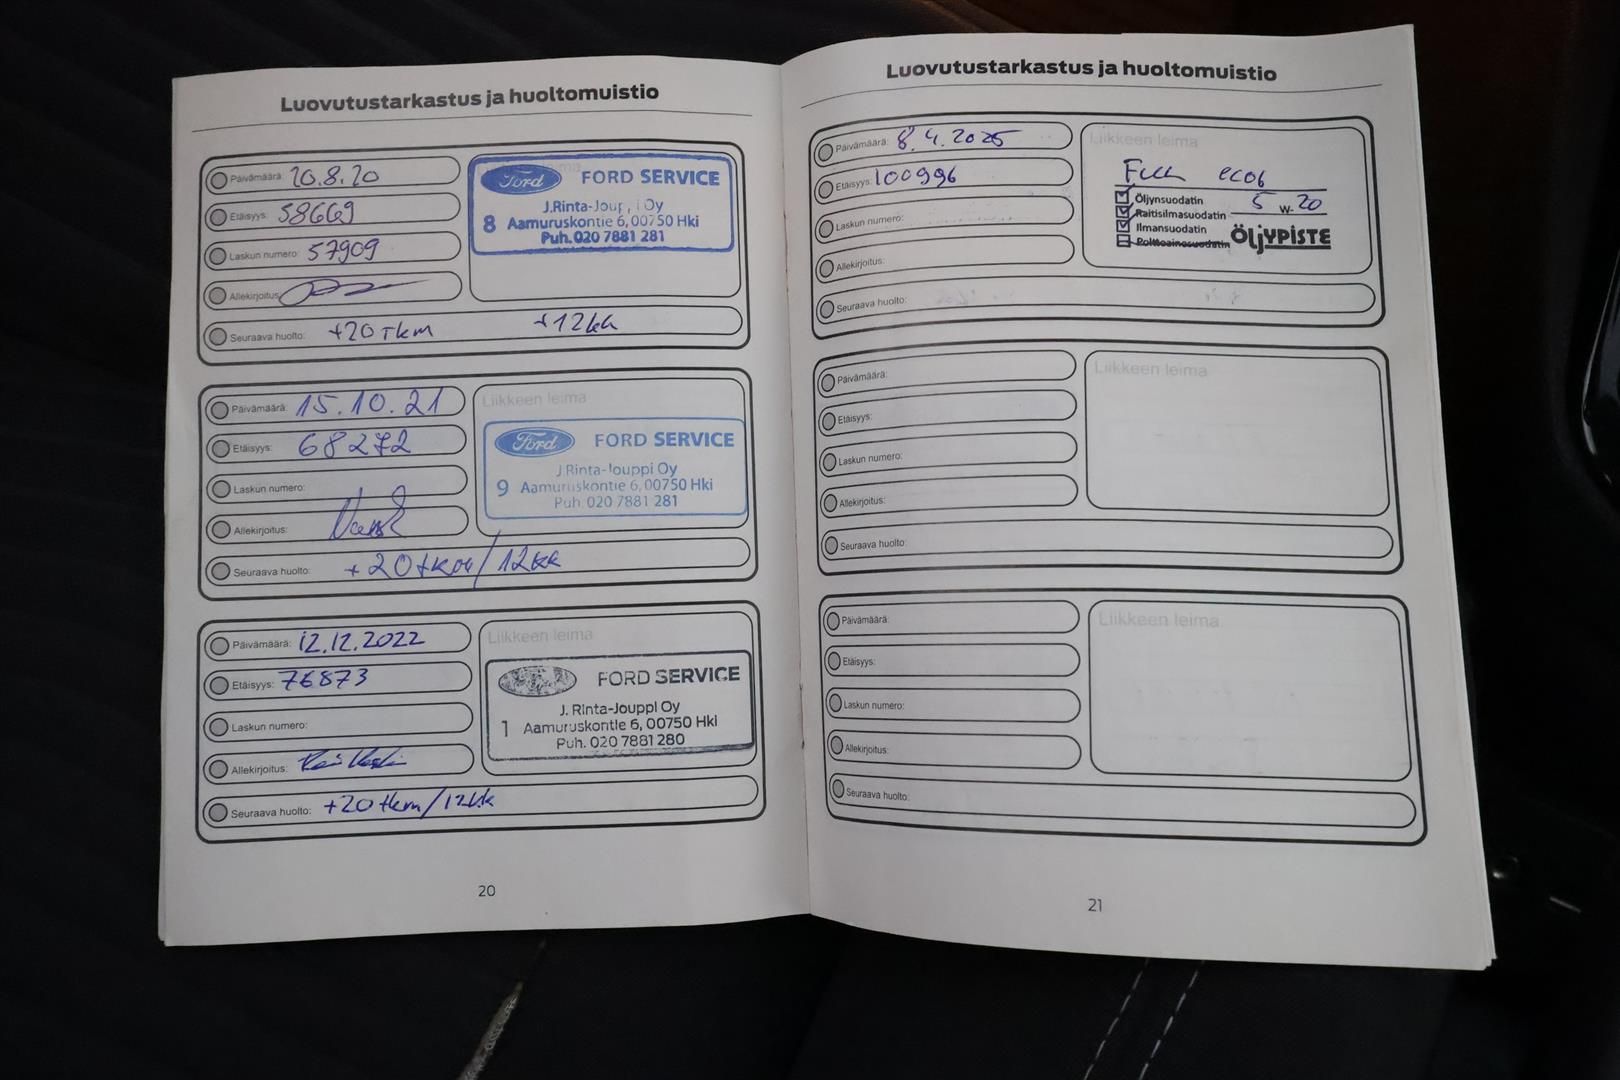 Luovutustarkastus ja huoltomuistio
Päivämäärä: 20.8.20
Etäisyys: 58669
Laskun numero: 57909
Allekirjoitus:
Seuraava huolto: +20 Tkm +12kk
Ford FORD SERVICE
J.Rinta-Jouppi Oy
8 Aamuruskontie 6, 00750 Hki
Puh. 020 7881 281
Päivämäärä: 15.10.21
Etäisyys: 68272
Laskun numero:
Allekirjoitus:
Seuraava huolto: +20tkm/12kk
Liikkeen leima
Ford FORD SERVICE
J Rinta-Jouppi Oy
9 Aamuruskontie 6, 00750 Hki
Puh. 020 7881 281
Päivämäärä: 12.12.2022
Etäisyys: 76873
Laskun numero:
Allekirjoitus:
Seuraava huolto: +20tkm/12kk
Liikkeen leima
FORD SERVICE
J. Rinta-Jouppi Oy
1 Aamuruskontie 6, 00750 Hki
Puh. 020 7881 280
20
Luovutustarkastus ja huoltomuistio
Päivämäärä: 8.4.2025
Etäisyys: 100996
Laskun numero:
Allekirjoitus:
Seuraava huolto:
Liikkeen leima
Öljynsuodatin 5 W- 20
Raitisilmasuodatin
Ilmansuodatin
Polttoainesuodatin
ÖLJYPISTE
Päivämäärä:
Etäisyys:
Laskun numero:
Allekirjoitus:
Seuraava huolto:
Liikkeen leima
Päivämäärä:
Etäisyys:
Laskun numero:
Allekirjoitus:
Seuraava huolto:
Liikkeen leima
21